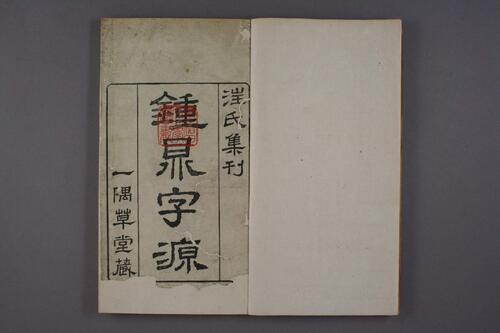 汪氏集刊
鍾鼎字源
一隅草堂藏